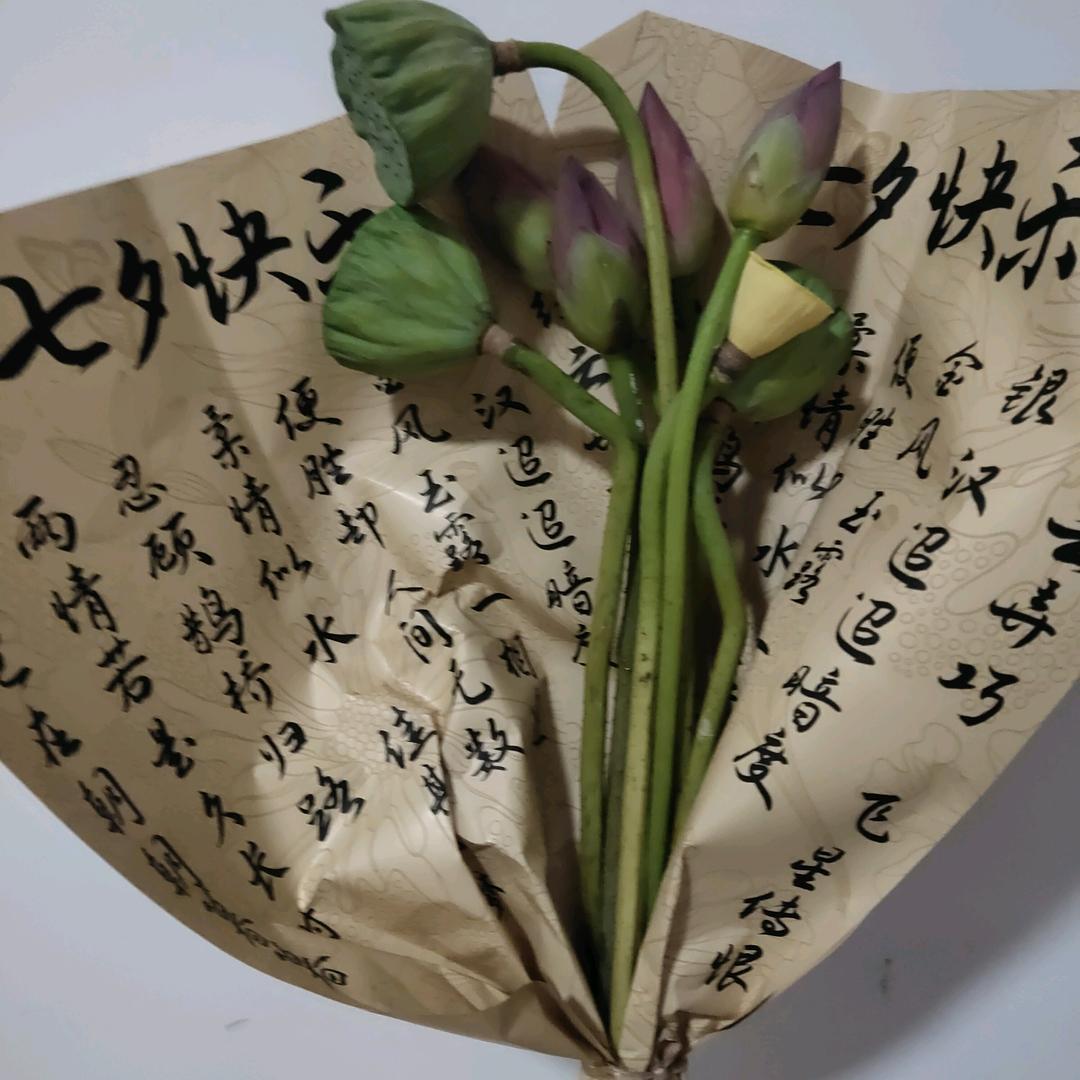 七夕快乐
七夕快乐
弄巧
飞星传恨
银汉迢迢暗度
金风玉露
便胜
柔情似水
汉迢迢暗
一相
风玉露
便胜却人间无数
柔情似水 佳期
忍顾鹊桥归路
两情若是久长
在朝朝